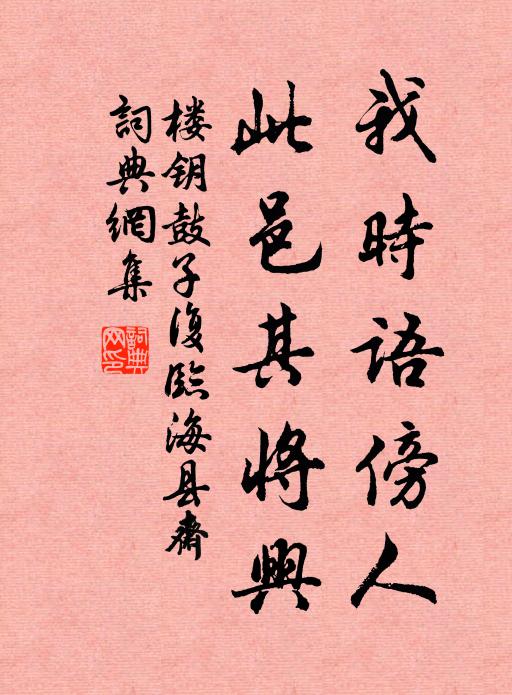 我時語傍人
此邑其將興
楼钥鼓子復臨海县齋
詞典網集
詞典网印